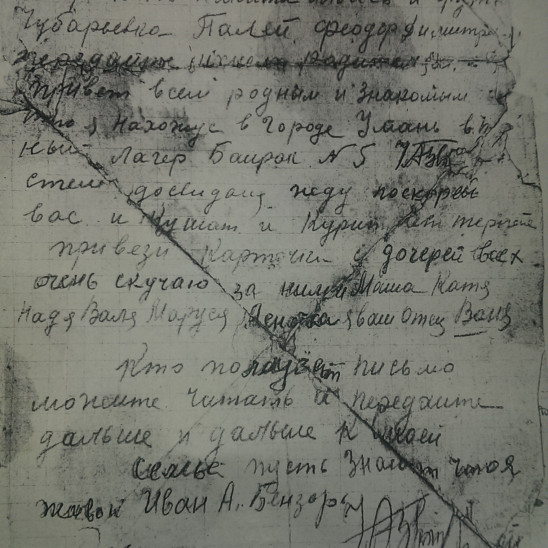 Чубарьевка Палей Феодор Димитри
передайте ихнем родителям
привет всем родным и знакомым
что я нахожус в городе Умань в
ный Лагер Баирак N 5
стем досвидание жду поскорее
вас и Кушат и Курит нет
привези Карточки дочерей всех
очень скучаю за ними Маша Катя
Надя Валя Маруся я ваш отец Ваня
Кто получает письмо
можете читать и передайте
дальше и дальше к моей
семье пусть знают что я
живой Иван А.